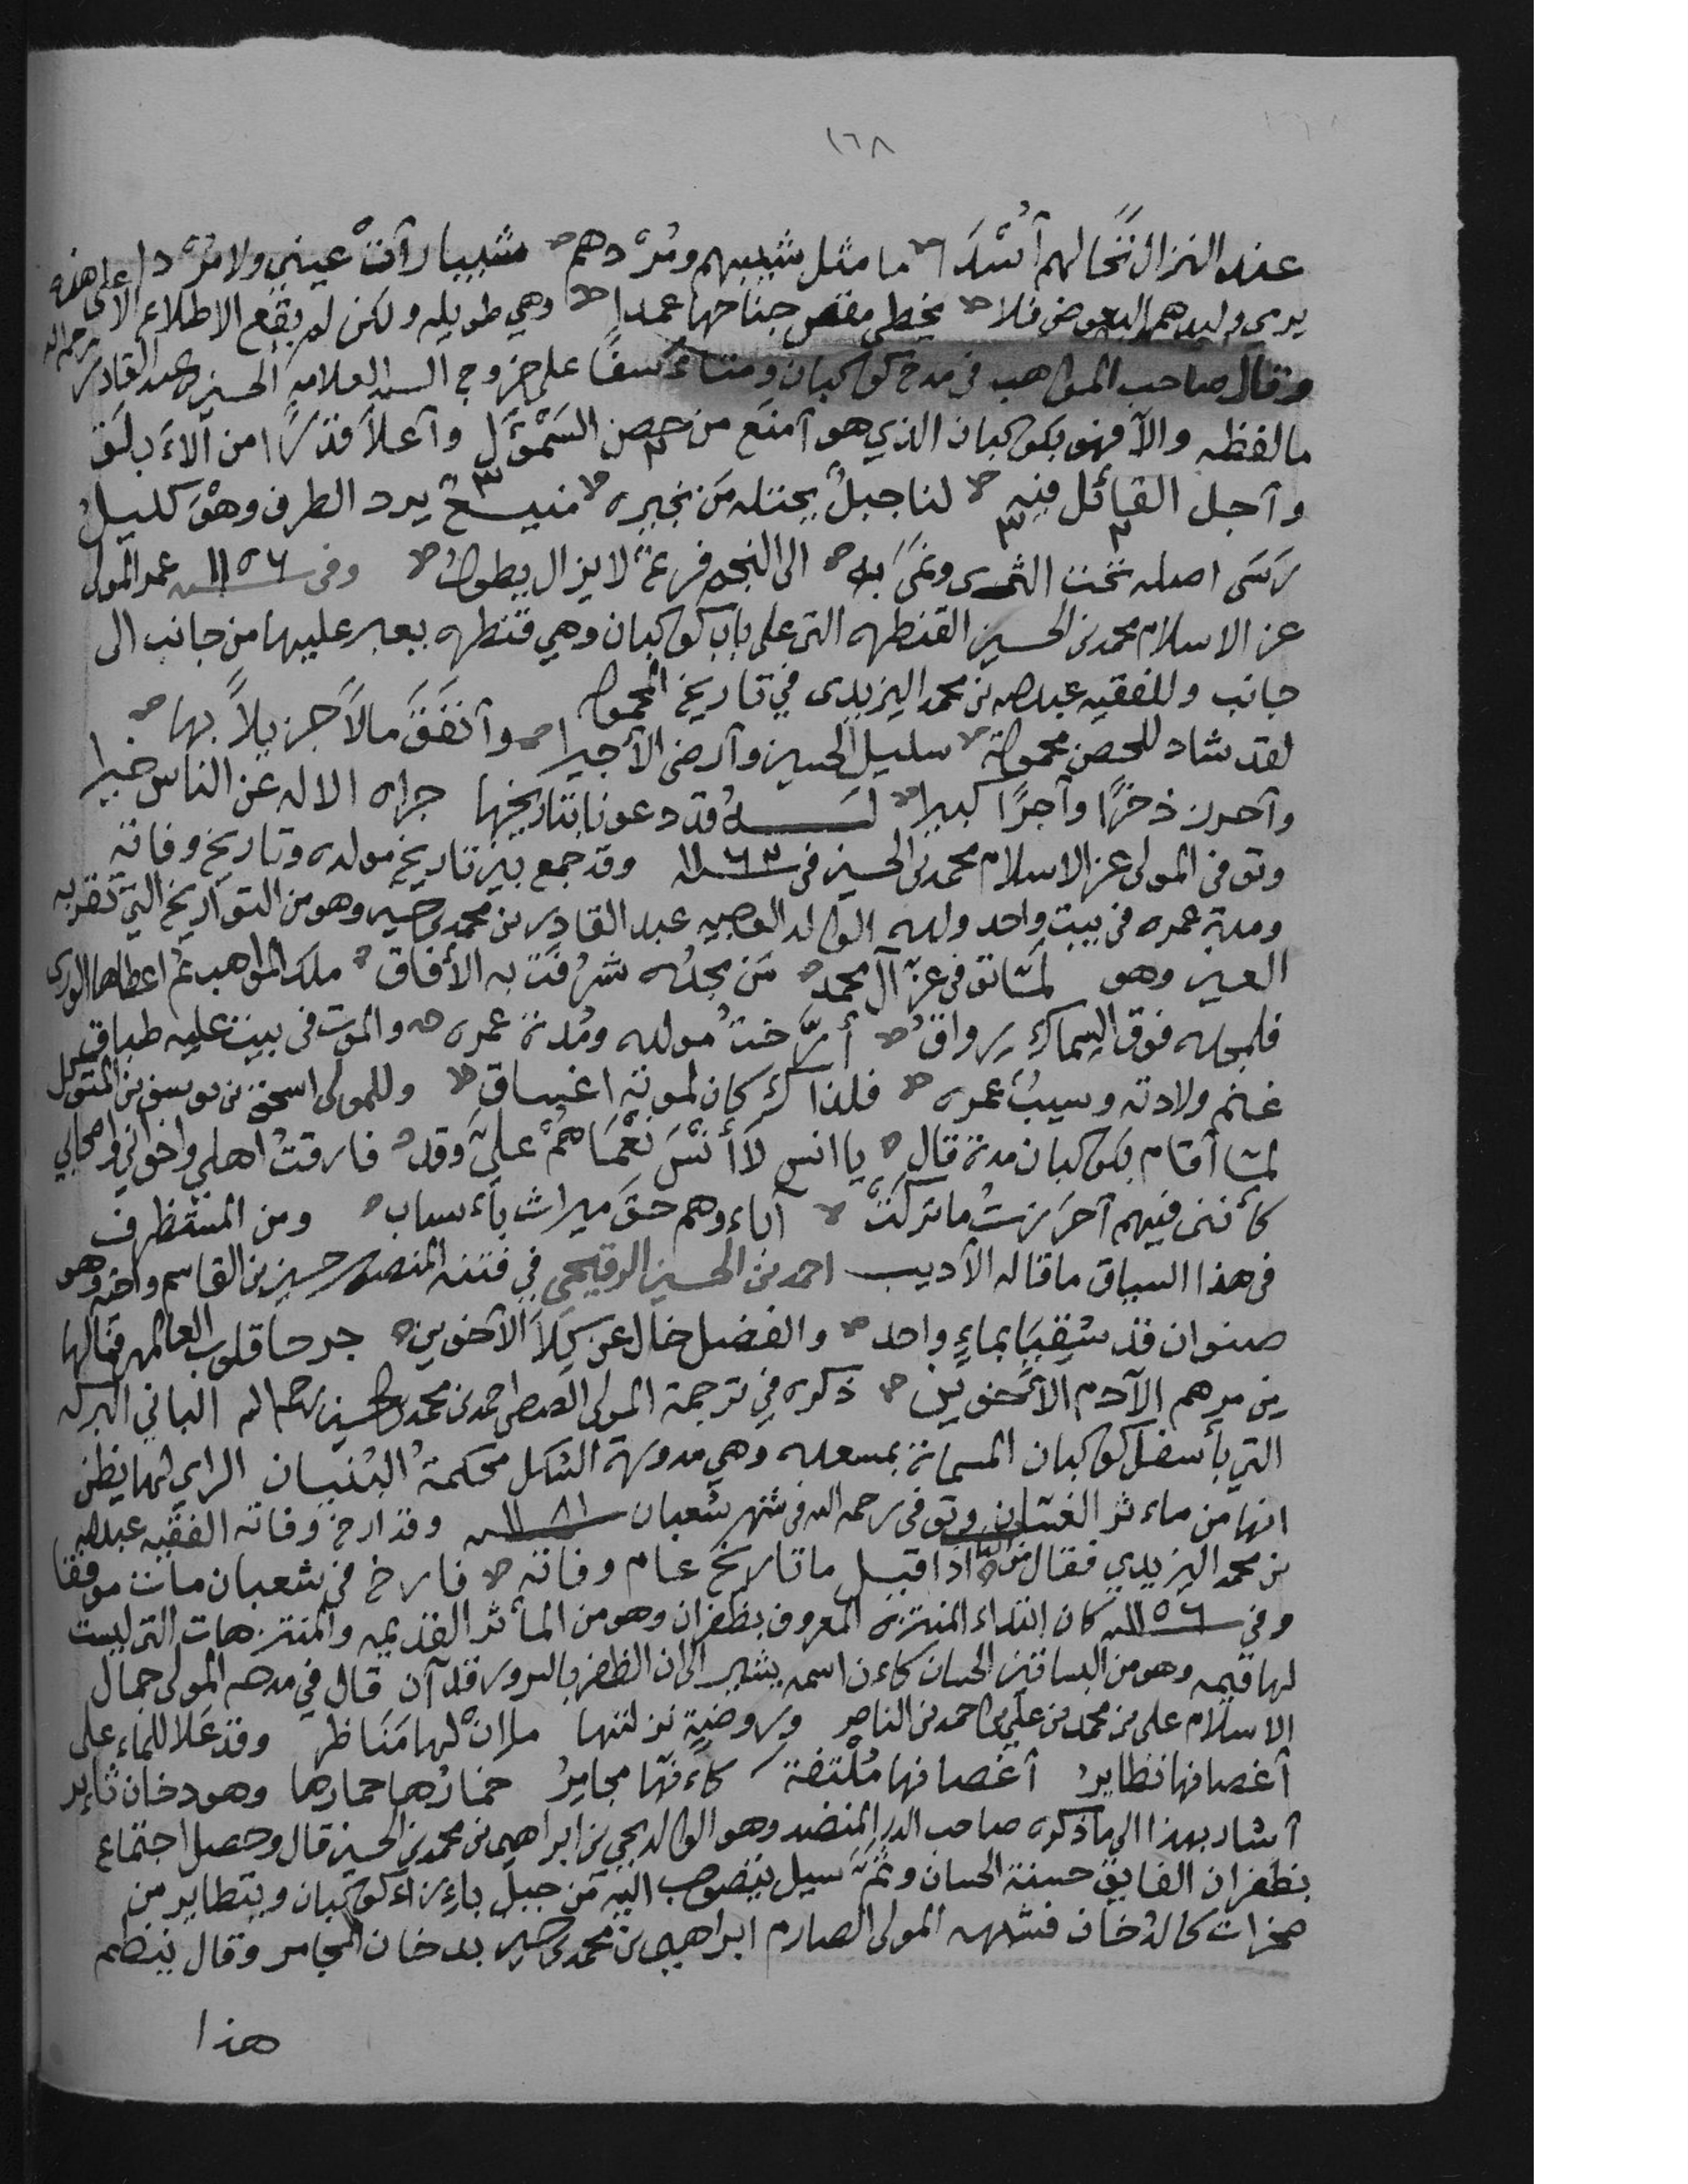 ١٦٨
عند النزال تخالهم أُسُدَا ما مثل شيبهم ومُرْدهم شيبا رأتْ عيني ولا مُرْدا
يرمي وليدهم البعوض فلا يخطي مقص جناحها عمدا وهي طويله ولكن لم يقع الاطلاع الا على هذه
وقال صاحب المواهب في مدح كوكبان ومتأسفًا على خروج السيد العلامه الحسين عبد القادر رحمه الله
ما لفظه والآ فهو بكوكبان الذي هو آمنع من حصن السَمْؤَل وآعلا قدرًا من آلاءَ بلَق
وآجل القائل فيه لنا جبلٌ يحتله مَن نجيره منيعٌ يرد الطرف وهْوَ كليلُ
رَسَى اصله تحت الثرى وسَمَى به الى النجم فرعٌ لا يزال يطولُ وفي ١١٥٦ سنه عمر المولى
عز الاسلام محمد بن الحسين القنطره التي على باب كوكبان وهي قنطره يعبر عليها من جانب الى
جانب وللفقيه عبدالله بن محمد اليزيدي في تاريخ المعموره
لقد شاد للحصن معمورة سليل الحسين وآرضى الآجيرا وآنفَقَ مالاً جزيلاً بها
وآحرز ذخرًا وآجرًا كبيرا لَهُ قد دعونا بتاريخها جزاه الاله عن الناس خيرا
وتوفي المولى عز الاسلام محمد بن الحسين في ١١٦٣ سنه وقد جمع بين تاريخ مولده وتاريخ وفاته
ومدة عمره في بيت واحد ولده الوالد الوجيه عبد القادر بن محمد بن حسين وهو من التواريخ التي تقر به
العين وهو لمّا توفي عزّ آل محمد مَن مجده شرُفَتْ به الأفاق ملك المواهب ثم اعطاها الورى
فلمجده فوق السماك رواقُ أرّختُ مولده ومُدة عمره والموت في بيت عليه طباق
غنم ولادته وسيبُ عمره فلذاك كان لموته اغساق وللمولى اسحق بن يوسف بن المتوكل
لمّا أقام بكوكبان مدة قال يا انس لاَ أَنْسَ نُعْمَاهُمْ عليّ وقد فارقتُ اهلي واخواني واصحابي
كأنني فيهم آحرَزتُ ما تركَتْ آباءوهم حقَ ميراث بأسباب ومن المستظرف
في هذا السياق ما قاله الآديب احمد بن الحسين الرقيحي في فتنه المنصور حسين بن القاسم واخيه وهو
صنوان قد سُقِيَا بماءٍ واحد والفضل خال عن كِلَا الآخوين جرحا قلوب العالمين فمالها
من مرهم الآدم الآخوين ذكره في ترجمة المولى الصفي احمد بن محمد بن الحسين رحمه الله الباني البركه
التي بأسفل كوكبان المسماة بمسعده وهي مدوره الشكل محكمةُ البُنيان الراي لها يظن
انها من ماءثر الغسان وتوفي رحمه الله في شهر شعبان ١١٨١ سنه وقد ارخ وفاته الفقيه عبدالله
بن محمد اليزيدي فقال اذا قيل ما تاريخُ عام وفاته فارخ في شعبان مات موفقا
وفي ١١٥٦ سنه كان ابتداء المنتزه المعروف بظفران وهو من المأثر القديمه والمنتزهات التي ليست
لها قيمه وهو من البساتين الحسان كاءن اسمه يشير الى ان الظفر بالسرور قد آن قال في مدحه المولى جمال
الاسلام على بن محمد بن علي بن احمد بن الناصر وروضةٍ نزلتها ما اِنْ لها مَنَاظر وقد عَلا للماء على
آغصانها تطاير آغصانها مُلْتفة كاءنّها مجامِرُ خمارُها حمارها وهو دخان ثاير
آشار بهذا الى ما ذكره صاحب الدر المنضد وهو الوالد يحيى بن ابراهيم بن محمد بن الحسين قال وحصل اجتماع
بظفران الفايق حسنة الحسان وثَمَّ سيل يتصوب اليه من جبل باءزاء كوكبان ويتطاير من
صخرات كالدُخان فشبهه المولى الصارم ابراهيم بن محمد بن حسين بدخان المجامر وقال ينظم
هذا